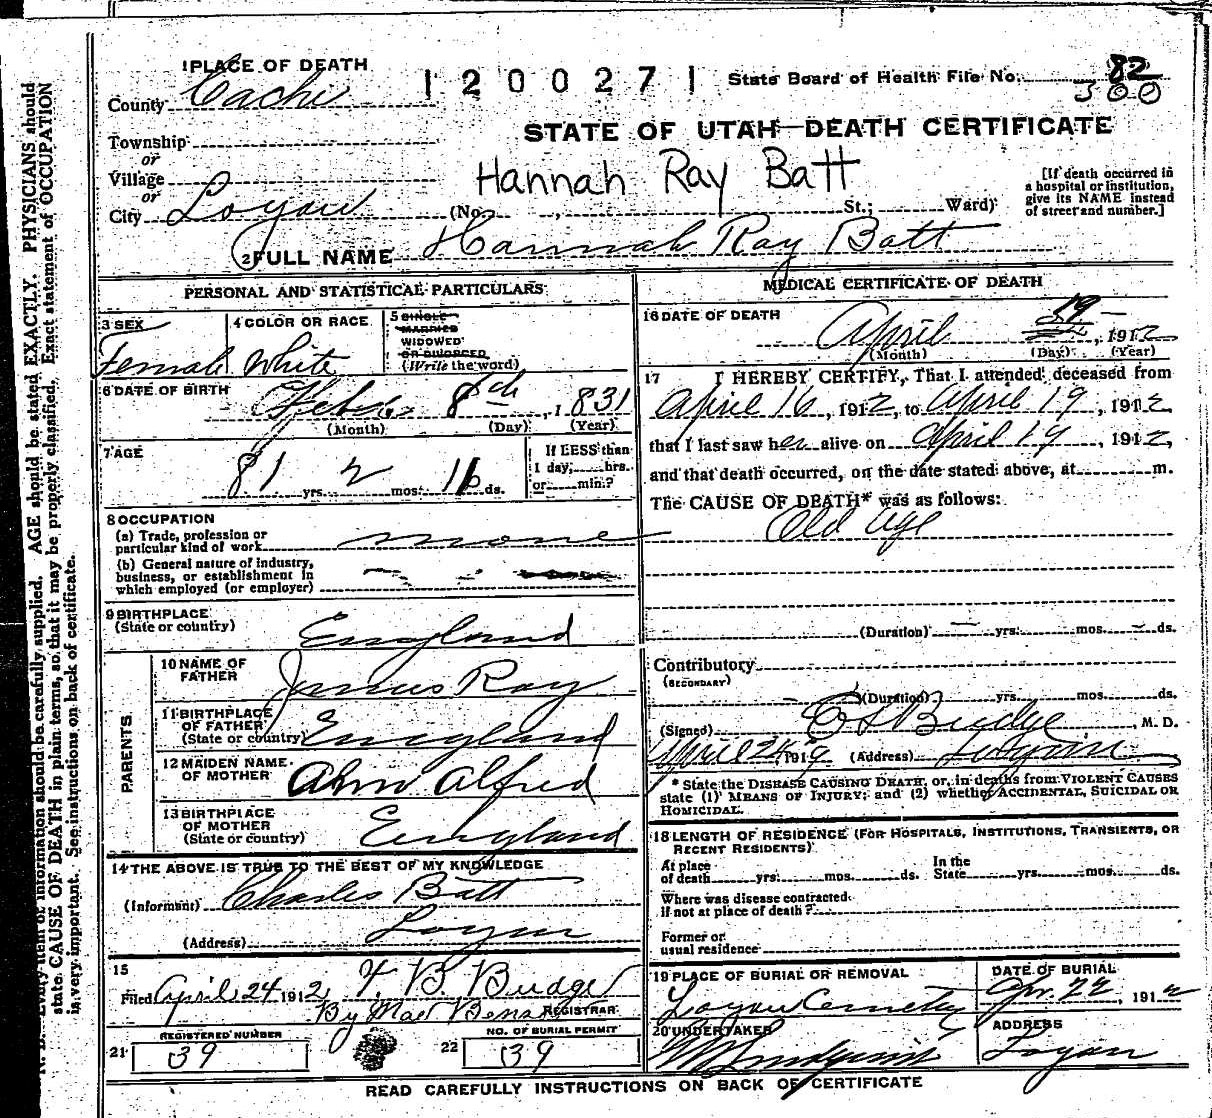 1 PLACE OF DEATH
County Cache
1200271
State Board of Health File No. 82
300
STATE OF UTAH—DEATH CERTIFICATE
Township
or
Village
or
City Logan
Hannah Ray Batt
(No. , St.; Ward)
[If death occurred in
a hospital or institution,
give its NAME instead
of street and number.]
2 FULL NAME Hannah Ray Batt
PERSONAL AND STATISTICAL PARTICULARS
3 SEX
Female
4 COLOR OR RACE
White
5 SINGLE
MARRIED
WIDOWED
OR DIVORCED
(Write the word)
6 DATE OF BIRTH
Feb. 8th, 1831
(Month) (Day) (Year)
7 AGE
81 yrs. 2 mos. 11 ds.
If LESS than
1 day, hrs.
or min.?
8 OCCUPATION
(a) Trade, profession or
particular kind of work none
(b) General nature of industry,
business, or establishment in
which employed (or employer)
9 BIRTHPLACE
(State or country) England
PARENTS
10 NAME OF
FATHER James Ray
11 BIRTHPLACE
OF FATHER
(State or country) England
12 MAIDEN NAME
OF MOTHER Ann Alfred
13 BIRTHPLACE
OF MOTHER
(State or country) England
14 THE ABOVE IS TRUE TO THE BEST OF MY KNOWLEDGE
(Informant) Charles Batt
(Address) Logan
15
Filed April 24 1912, F. B. Budge
By Mae Bens REGISTRAR
REGISTERED NUMBER
21 39
NO. OF BURIAL PERMIT
22 39
MEDICAL CERTIFICATE OF DEATH
16 DATE OF DEATH
April 19, 1912
(Month) (Day) (Year)
17 I HEREBY CERTIFY, That I attended deceased from
April 16, 1912, to April 19, 1912
that I last saw her alive on April 19, 1912,
and that death occurred, on the date stated above, at m.
The CAUSE OF DEATH* was as follows:
Old age
(Duration) yrs. mos. ds.
Contributory
(SECONDARY)
(Duration) yrs. mos. ds.
(Signed) Budge, M. D.
April 24, 191 (Address) Logan
* State the DISEASE CAUSING DEATH, or, in deaths from VIOLENT CAUSES
state (1) MEANS OF INJURY; and (2) whether ACCIDENTAL, SUICIDAL OR
HOMICIDAL.
18 LENGTH OF RESIDENCE (FOR HOSPITALS, INSTITUTIONS, TRANSIENTS, OR
RECENT RESIDENTS)
At place
of death yrs. mos. ds.
In the
State yrs. mos. ds.
Where was disease contracted,
if not at place of death?
Former or
usual residence
19 PLACE OF BURIAL OR REMOVAL
Logan Cemetery
DATE OF BURIAL
Apr. 22, 1912
20 UNDERTAKER
Lindquist
ADDRESS
Logan
READ CAREFULLY INSTRUCTIONS ON BACK OF CERTIFICATE
Every item of information should be carefully supplied. AGE should be stated EXACTLY. PHYSICIANS should
state CAUSE OF DEATH in plain terms, so that it may be properly classified. Exact statement of OCCUPATION
is very important. See instructions on back of certificate.